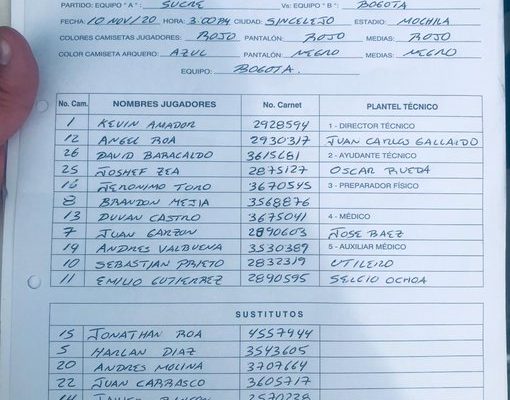 PARTIDO: EQUIPO "A": SUCRE Vs: EQUIPO "B": BOGOTA
FECHA: 10 NOV/20 HORA: 3:00 PM CIUDAD: SINCELEJO ESTADIO: MOCHILA
COLORES CAMISETAS JUGADORES: ROJO PANTALÓN: ROJO MEDIAS: ROJO
COLOR CAMISETA ARQUERO: AZUL PANTALÓN: NEGRO MEDIAS: NEGRO
EQUIPO: BOGOTA.
No. Cam. NOMBRES JUGADORES No. Carnet PLANTEL TÉCNICO
1 KEVIN AMADOR 2928594 1 - DIRECTOR TÉCNICO
12 ANGEL ROA 2930317 JUAN CARLOS GALLARDO
26 DAVID BARACALDO 3615681 2 - AYUDANTE TÉCNICO
25 JOSHEF ZEA 2875127 OSCAR RUEDA
16 JERONIMO TORO 3670545 3 - PREPARADOR FÍSICO
8 BRANDON MEJIA 3568876
13 DUVAN CASTRO 3675041 4 - MÉDICO
7 JUAN GARZON 2890603 JOSE BAEZ
19 ANDRES VALBUENA 3530389 5 - AUXILIAR MÉDICO
10 SEBASTIAN PRIETO 2832319 UTILERO
11 EMILIO GUTIERREZ 2890595 SELGIO OCHOA
SUSTITUTOS
15 JONATHAN ROA 4557944
5 HARLAN DIAZ 3543605
20 ANDRES MOLINA 3707664
22 JUAN CARRASCO 3605717
2570228